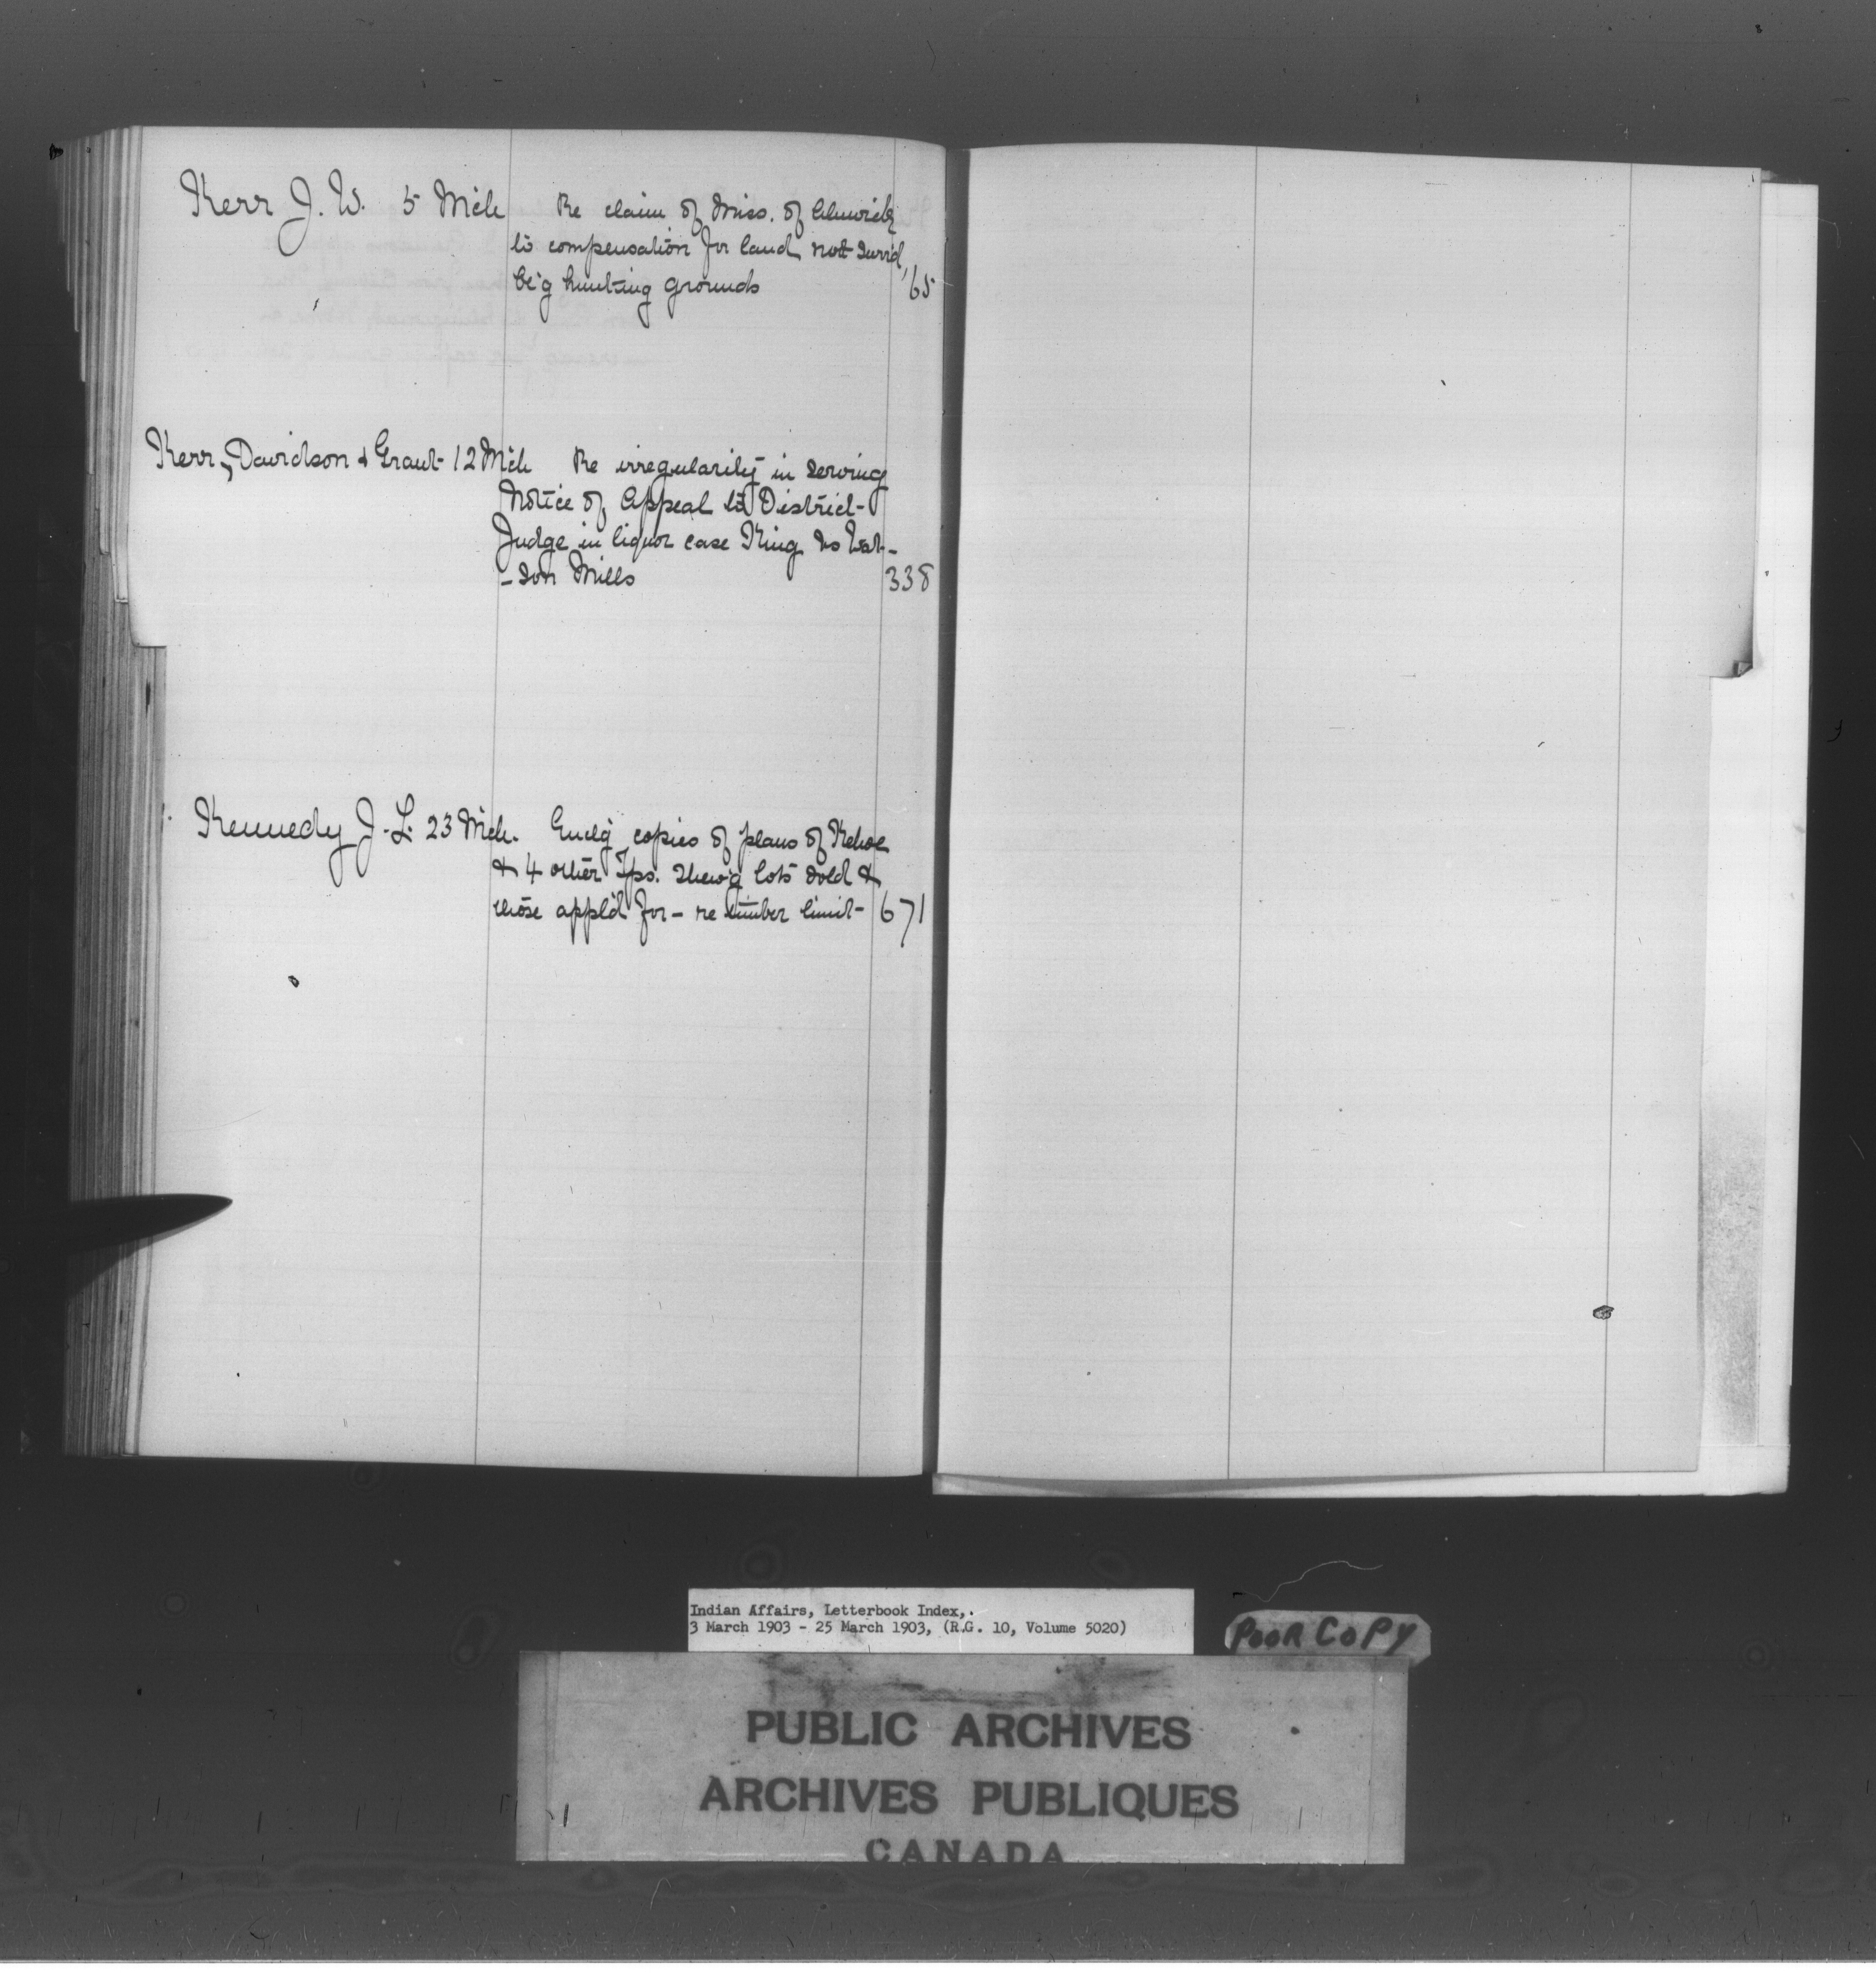 Kerr J. W. 5 Mch Re claim of Miss. of Alnwick
to compensation for land not surr'd,
be'g hunting grounds 65
Kerr, Davidson & Grant 12 Mch Re irregularity in serving
Notice of Appeal to District
Judge in liquor case King vs Wat-
-son Mills 338
Kennedy J. L. 23 Mch. Encl'g copies of plans of Kehoe
& 4 other Tps. shew'g lots sold &
those appl'd for - re timber limit 671
Indian Affairs, Letterbook Index,.
3 March 1903 - 25 March 1903, (R.G. 10, Volume 5020)
POOR COPY
PUBLIC ARCHIVES
ARCHIVES PUBLIQUES
CANADA